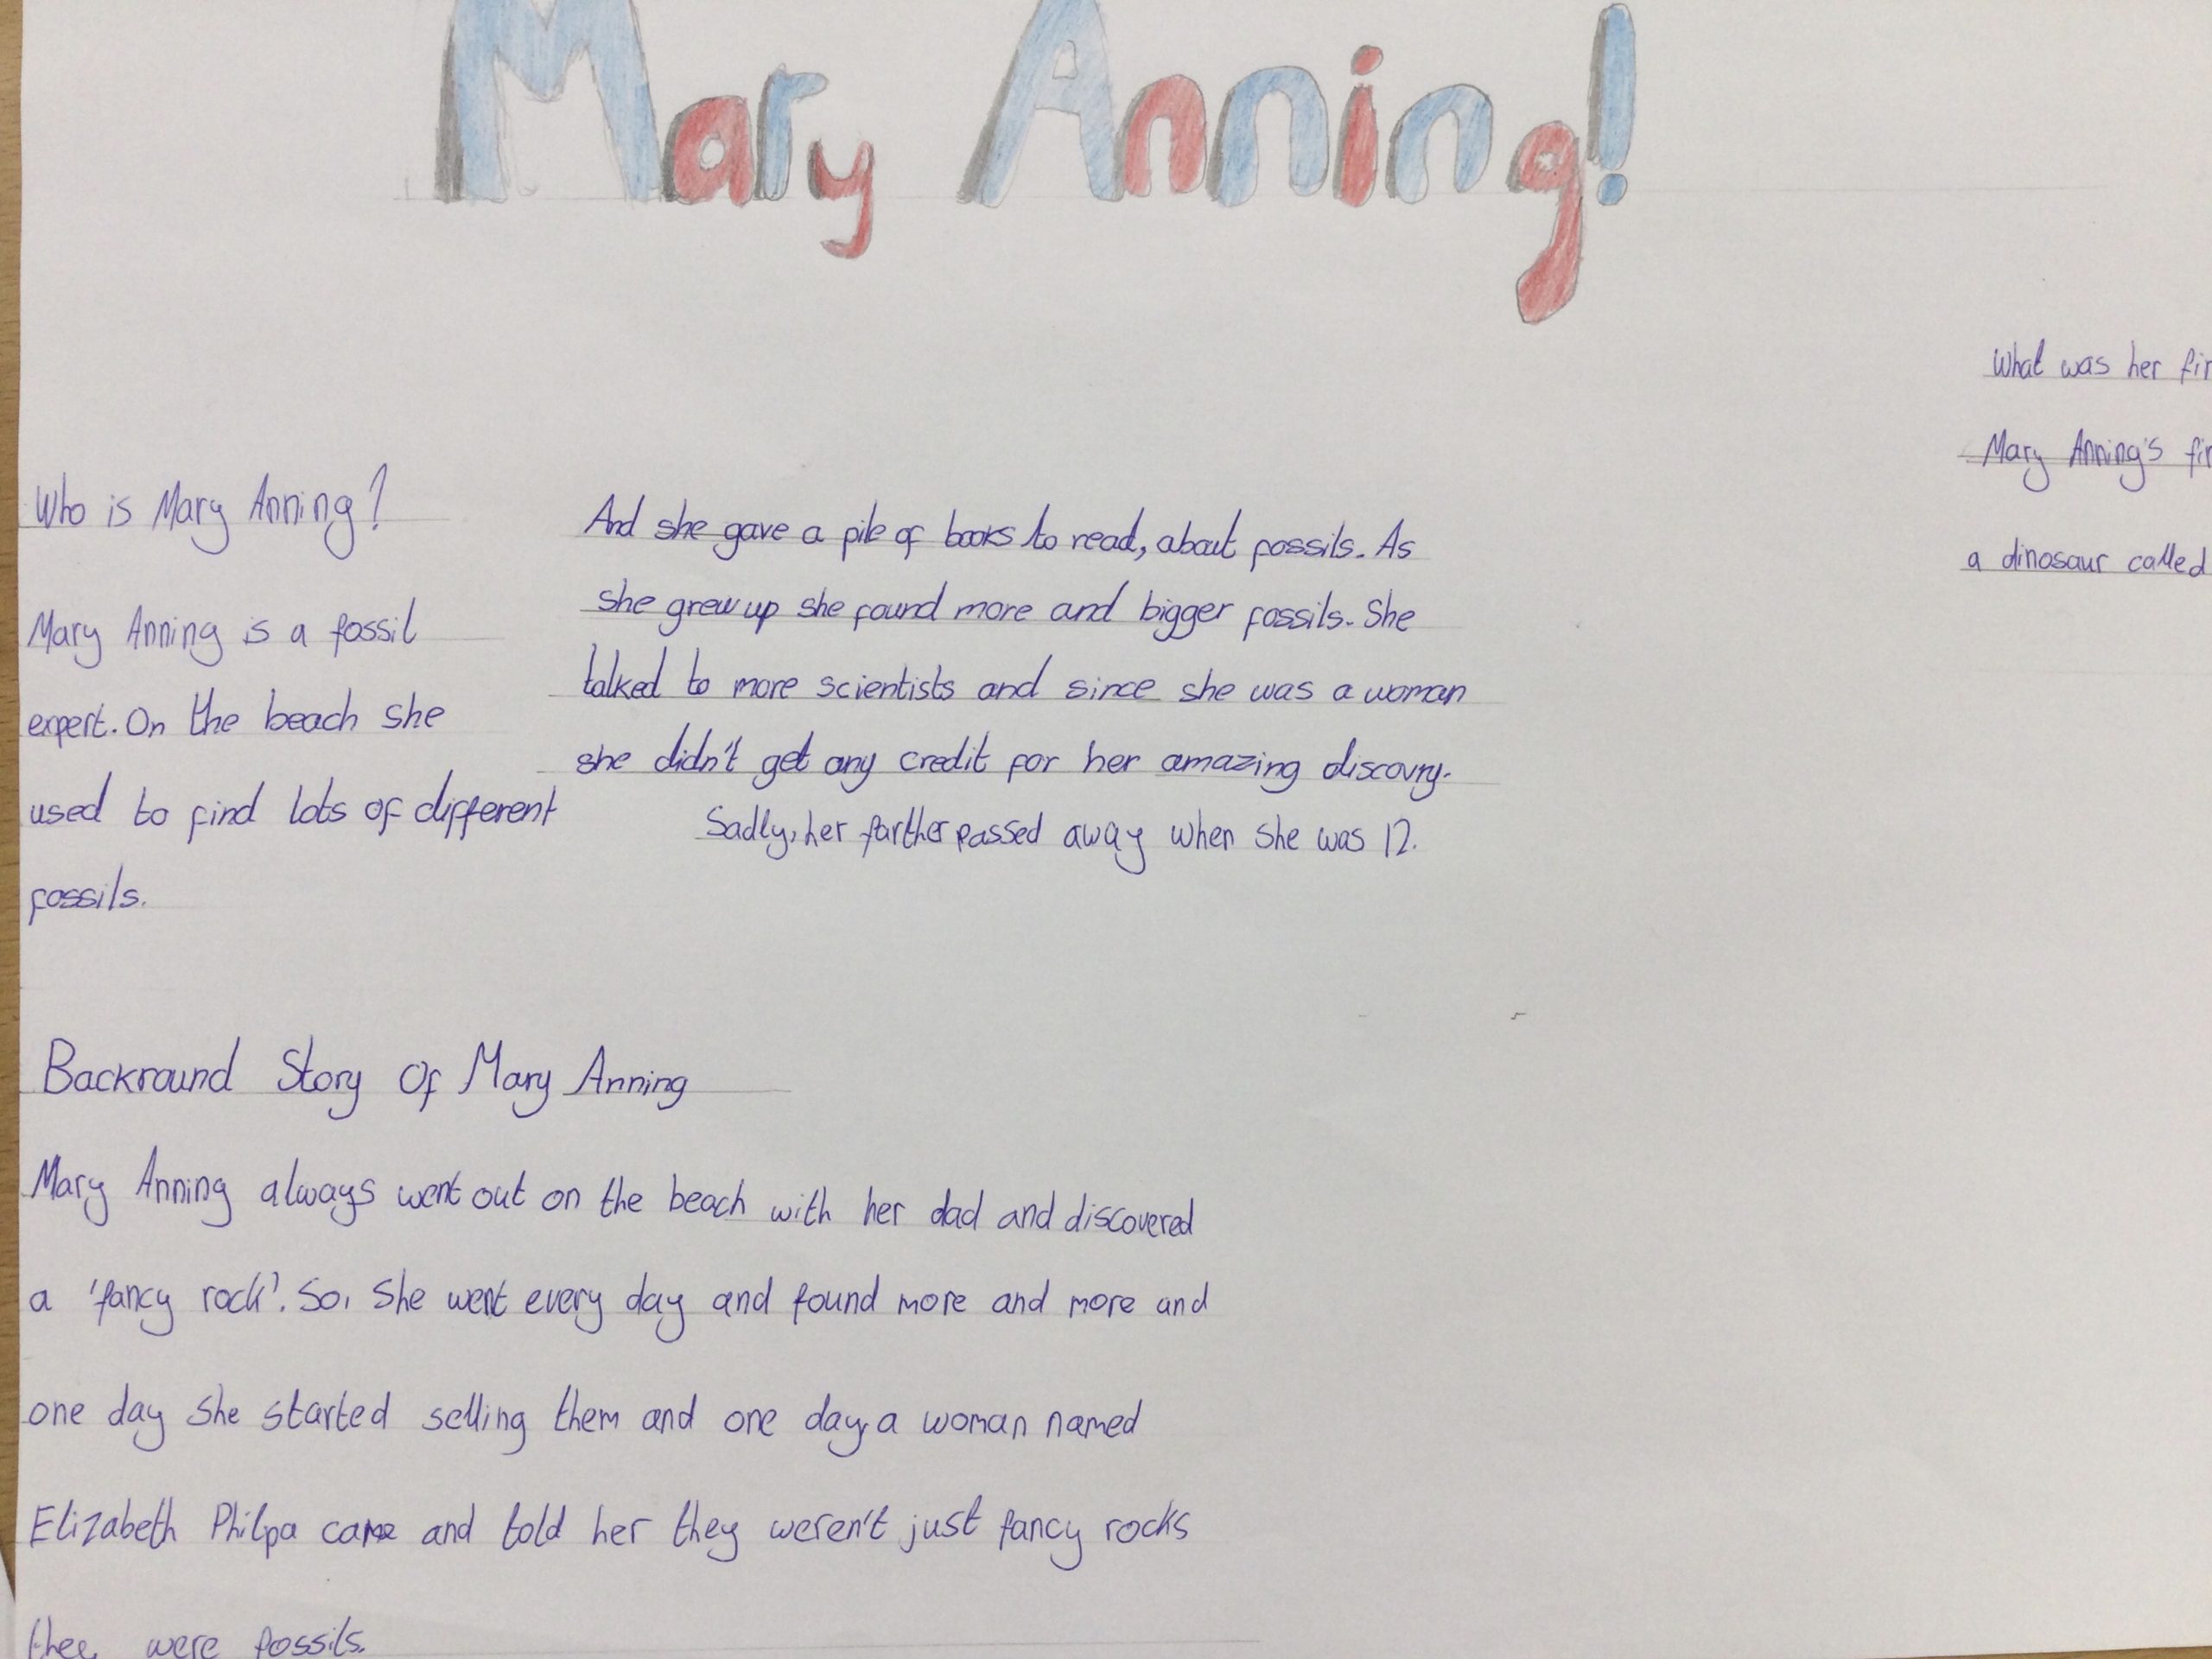 Mary Anning!
Who is Mary Anning?
Mary Anning is a fossil
expert. On the beach she
used to find lots of different
fossils.
Backround Story Of Mary Anning
Mary Anning always went out on the beach with her dad and discovered
a 'fancy rock'. So, she went every day and found more and more and
one day she started selling them and one day, a woman named
Elizabeth Philpa came and told her they weren't just fancy rocks
they were fossils.
And she gave a pile of books to read, about fossils. As
she grew up she found more and bigger fossils. She
talked to more scientists and since she was a woman
she didn't get any credit for her amazing discovry.
Sadly, her farther passed away when she was 12.
What was her
Mary Anning's
a dinosaur called